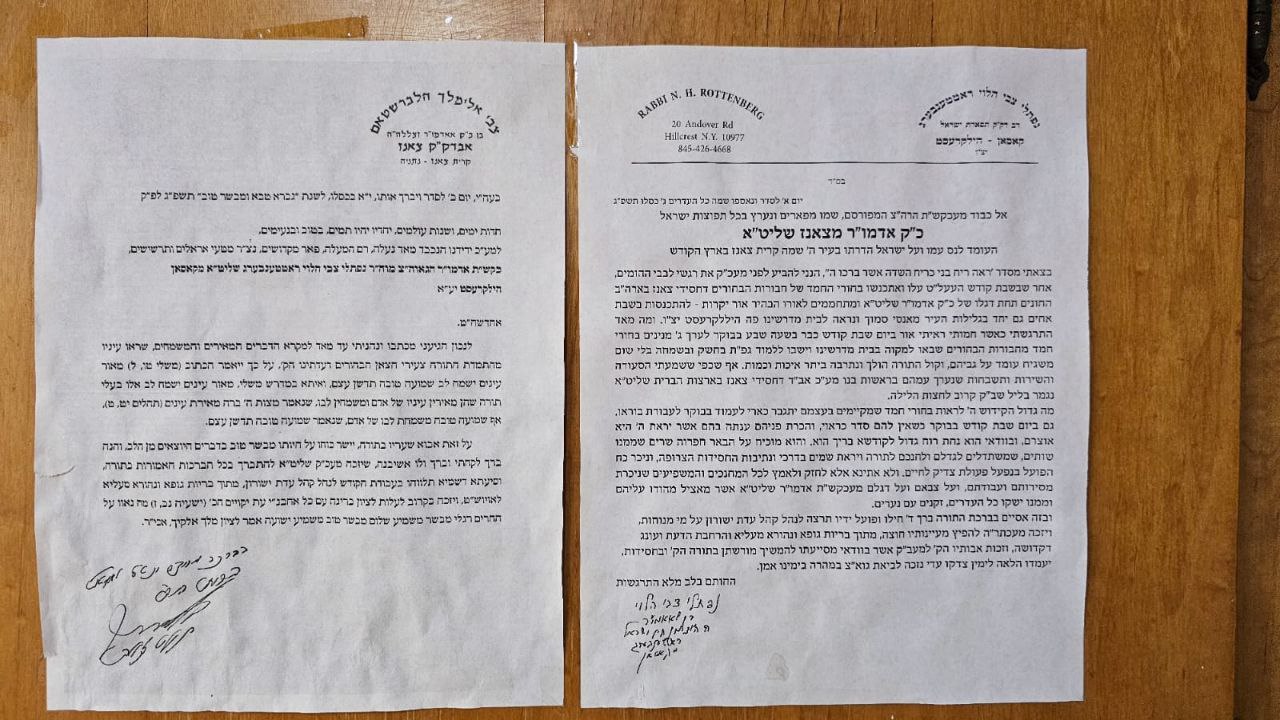 צבי אלימלך הלברשטאם
בן כ"ק אאדמו"ר זצללה"ה
אבדק"ק צאנז
קרית צאנז - נתניה
בעה"י, יום ב' לסדר ויברך אותו, י"א בכסלו, לשנת "גברא טבא ומבשר טוב" תשפ"ג לפ"ק
חדות ימים, ושנות עולמים, יחדיו יהיו תמים, בטוב ובנעימים,
למע"כ ידידנו הנכבד מאד נעלה, רם המעלה, פאר מקדושים, נצ"ר מטעי אראלים ותרשישים,
כקש"ת אדמו"ר הגאוה"צ מוה"ר נפתלי צבי הלוי ראטטענבערג שליט"א מקאסאן
הילקרעסט יע"א
אחדשה"ט.
לנכון הגיעני מכתבו ונהניתי עד מאד למקרא הדברים המאירים והמשמחים, שראו עיניו
מהתמדת התורה צעירי הצאן הבחורים דעדתינו הק', על כך ייאמר הכתוב (משלי טו, ל) מאור
עינים ישמח לב שמועה טובה תדשן עצם, ואיתא במדרש משלי, מאור עינים ישמח לב אלו בעלי
תורה שהן מאירין עיניו של אדם ומשמחין לבו, שנאמר מצות ה' ברה מאירת עינים (תהלים יט, ט),
אף שמועה טובה משמחת לבו של אדם, שנאמר שמועה טובה תדשן עצם.
על זאת אבוא שעריו בתודה, יישר כוחו על היותו מבשר טוב בדברים היוצאים מן הלב, והנה
ברך לקחתי וברך ולו אשיבנה, שיזכה מעכ"ק שליט"א להתברך בכל הברכות האמורות בתורה,
וסיעתא דשמיא תלווהו בעבודת הקודש לנהל קהל עדת ישורון, מתוך בריות גופא ונהורא מעליא
לאויוש"ט, ויזכה בקרוב לעלות לציון ברינה עם כל אחב"י עת יקויים הכ' (ישעיה נב, ז) מה נאוו על
ההרים רגלי מבשר משמיע שלום מבשר טוב משמיע ישועה אמר לציון מלך אלקיך, אכי"ר.
RABBI N. H. ROTTENBERG
20 Andover Rd
Hillcrest N.Y. 10977
845-426-4668
נפתלי צבי הלוי ראטטענבערג
רב דק"ק תפארת ישראל
קאסאן - הילקרעסט
יצ"ו
בס"ד
יום א' לסדר ונאספו שמה כל העדרים ג' כסלו תשפ"ג
אל כבוד מעכקש"ת הרה"צ המפורסם, שמו מפארים ונערץ בכל תפוצות ישראל
כ"ק אדמו"ר מצאנז שליט"א
העומד לנס עמו ועל ישראל הדרתו בעיר ה' שמה קרית צאנז בארץ הקודש
בצאתי מסדר "ראה ריח בני כריח השדה אשר ברכו ה'", הנני להביע לפני מעכ"ק את רגשי לבבי ההומים,
אחר שבשבת קודש העעל"ט עלו ואתכנשו בחורי החמד של חבורות הבחורים דחסידי צאנז בארה"ב
החונים תחת דגלו של כ"ק אדמו"ר שליט"א ומתחממים לאורו הבהיר אור יקרות - להתכנסות בשבת
אחים גם יחד בגלילות העיר מאנסי סמוך ונראה לבית מדרשינו פה הילקרעסט יצ"ו. ומה מאד
התרגשתי כאשר חמותי ראיתי אור ביום שבת קודש כבר בשעה שבע בבוקר לערך ג' מנינים בחורי
חמד מחבורות הבחורים שבאו למקוה בבית מדרשינו וישבו ללמוד גפ"ת בחשק ובשמחה בלי שום
משגיח עומד על גביהם, וקול התורה הולך ונתרבה ביתר איכות וכמות. אף שכפי ששמעתי הסעודה
והשירות ותשבחות שנערך עמהם בראשות בנו מע"כ אב"ד דחסידי צאנז בארצות הברית שליט"א
נגמר בליל שב"ק קרוב לחצות הלילה.
מה גדול הקידוש ה' לראות בחורי חמד שמקיימים בעצמם יתגבר כארי לעמוד בבוקר לעבודת בוראו,
גם ביום שבת קודש בבוקר כשאין להם סדר כראוי, והכרת פניהם ענתה בהם אשר יראת ה' היא
אוצרם, ובוודאי הוא נחת רוח גדול לקודשא בריך הוא. והוא מוכיח על הבאר חפרוה שרים שממנו
שותים, שמשתדלים לגדלם ולחנכם לתורה ויראת שמים בדרכי ונתיבות החסידות הצרופה, וניכר כח
הפועל בנפעל פעולת צדיק לחיים. ולא אתינא אלא לחזק ולאמץ לכל המחנכים והמשפיעים שניכרת
מסירותם ועבודתם. ועל צבאם ועל דגלם מעכקש"ת אדמו"ר שליט"א אשר מאציל מהודו עליהם
וממנו ישקו כל העדרים, זקנים עם נערים.
ובזה אסיים בברכת התורה ברך ד' חילו ופועל ידיו תרצה לנהל קהל עדת ישורון על מי מנוחות,
ויזכה מעכתר"ה להפיץ מעיינותיו חוצה, מתוך בריות גופא ונהורא מעליא והרחבת הדעת ועונג
דקדושה, וזכות אבותיו הק' למעב"ק אשר בוודאי מסייעתו להמשיך מורשתן בתורה הק' ובחסידות,
יעמדו הלאה לימין צדקו עדי נזכה לביאת גוא"צ במהרה בימינו אמן.
החותם בלב מלא התרגשות
נפתלי צבי הלוי